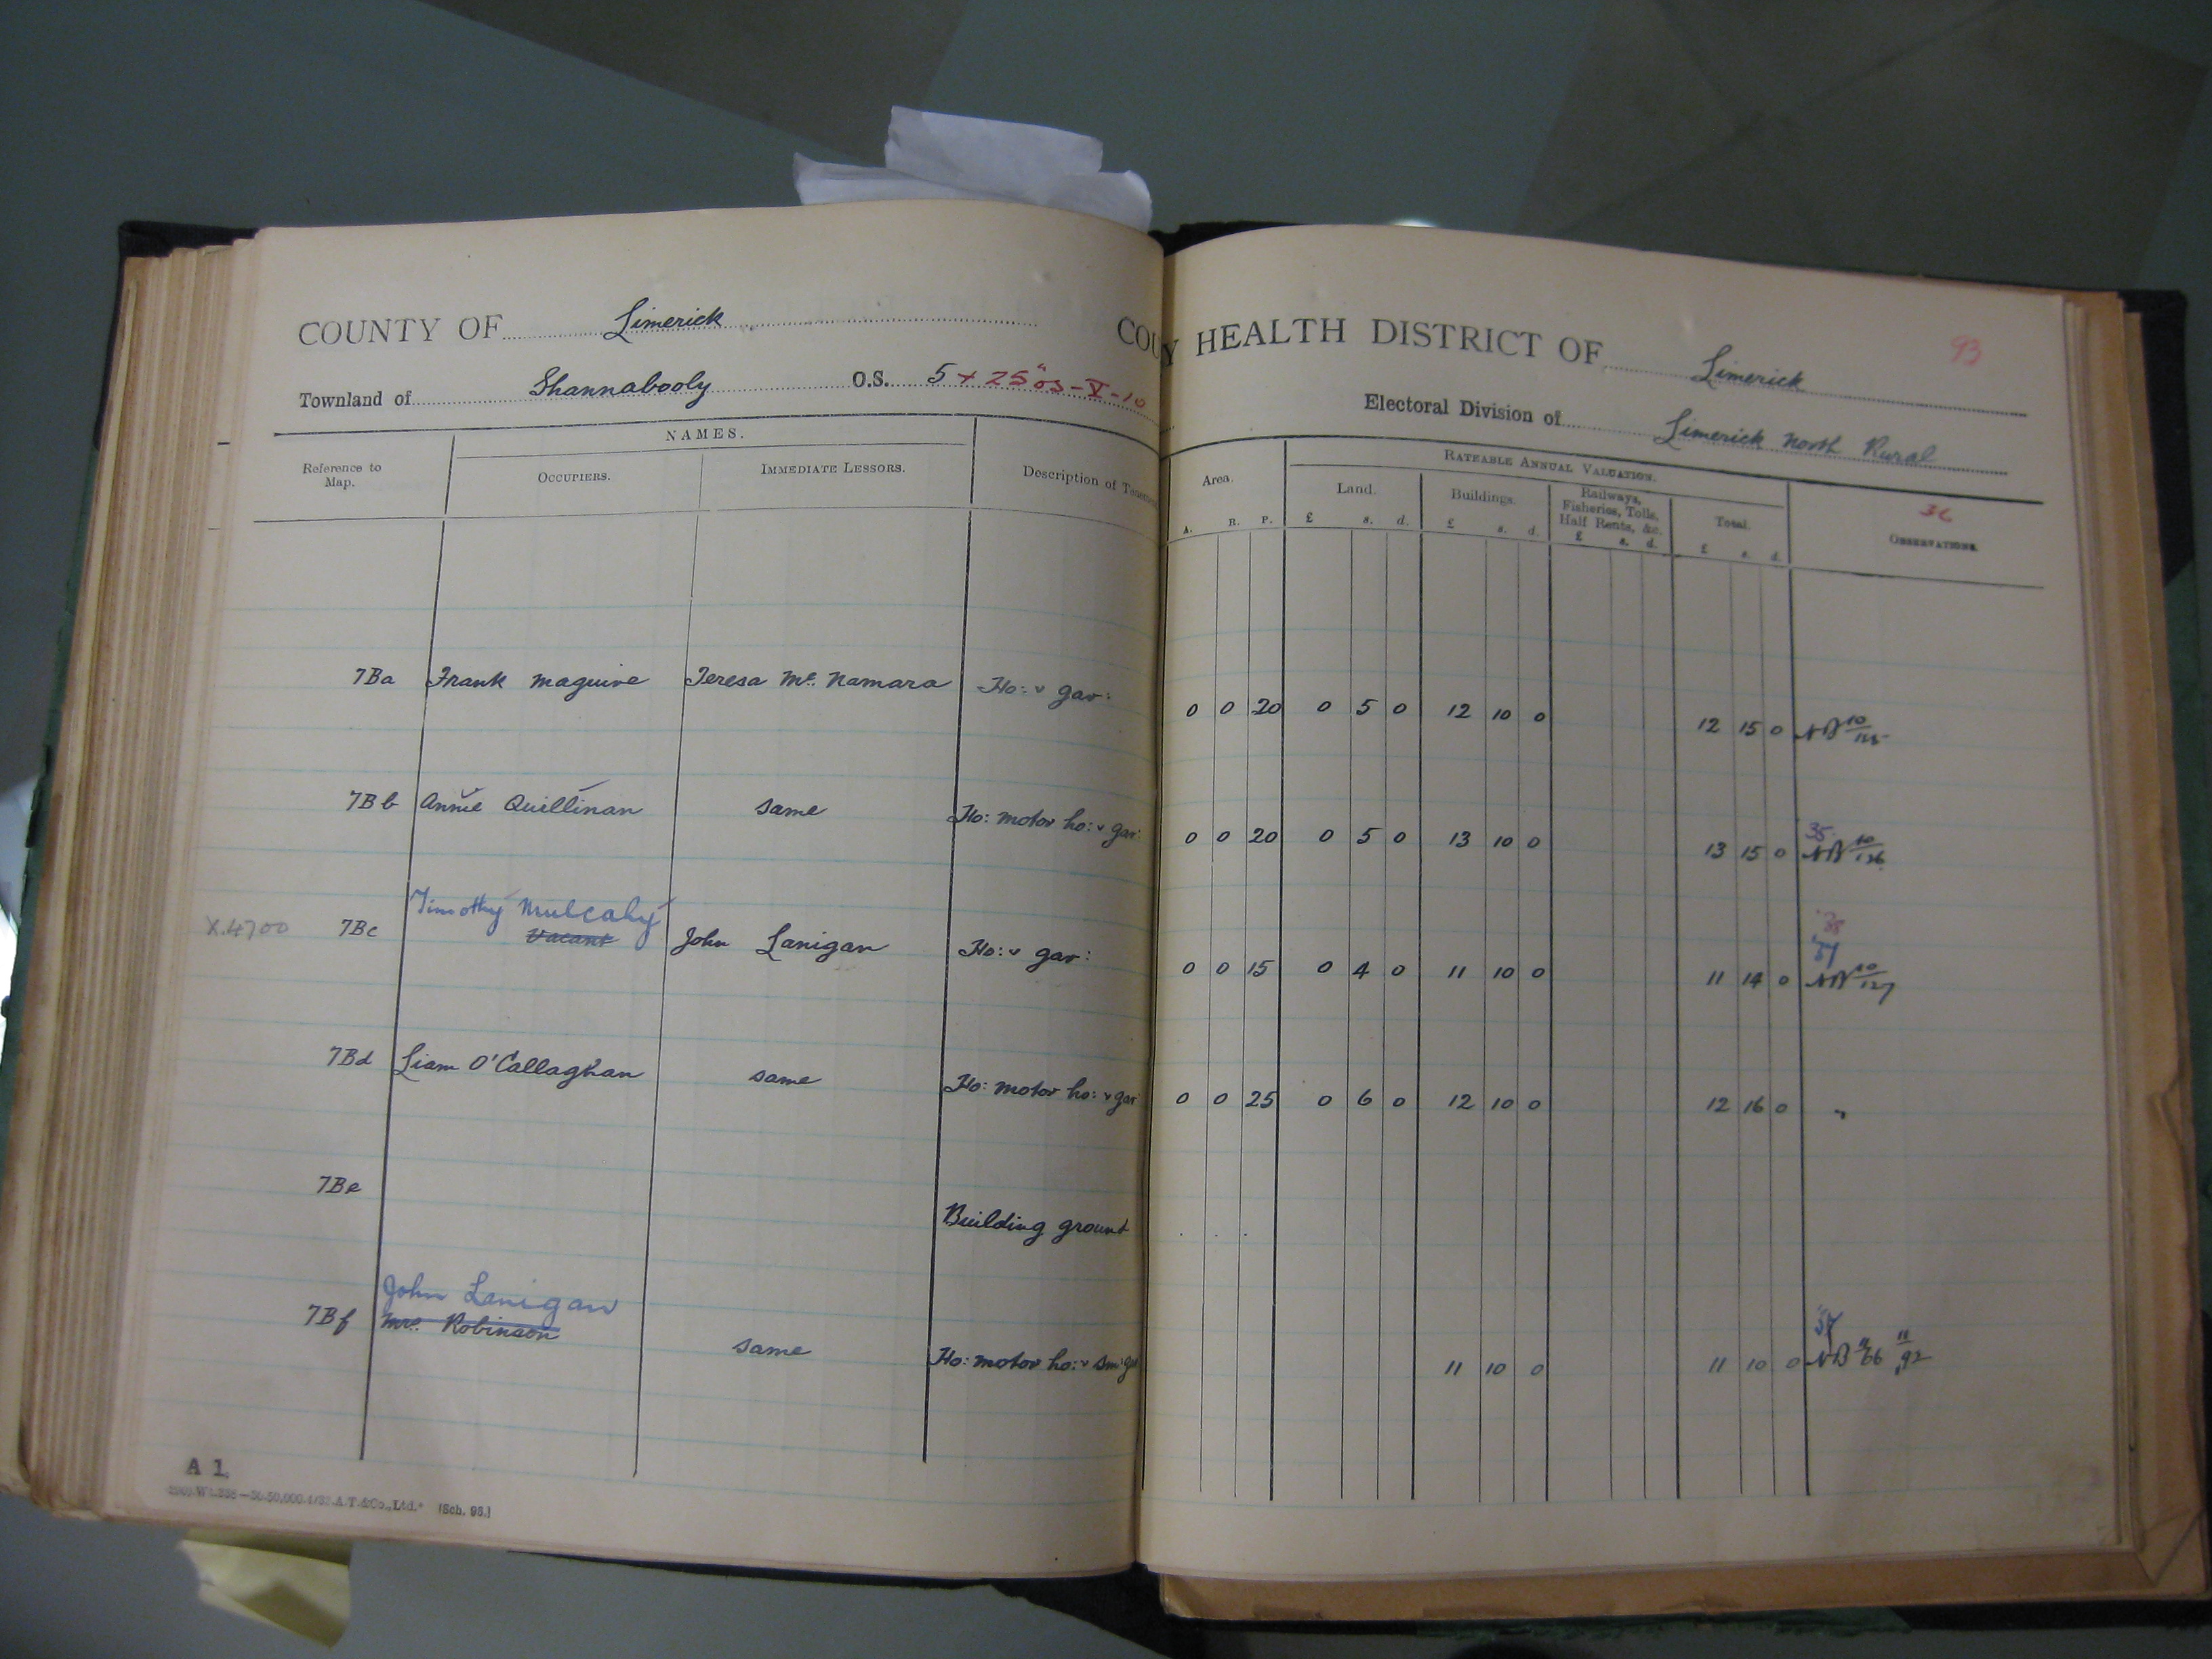 COUNTY OF Limerick
COU Y HEALTH DISTRICT OF Limerick
93
Townland of Shannabooly O.S. 5 + 25" OS - V - 10
Electoral Division of Limerick North Rural
NAMES.
Reference to Map.
OCCUPIERS.
IMMEDIATE LESSORS.
Description of Tenem
Area.
A. R. P.
RATEABLE ANNUAL VALUATION.
Land.
£ s. d.
Buildings.
£ s. d.
Railways, Fisheries, Tolls, Half Rents, &c.
£ s. d.
Total.
£ s. d.
36
OBSERVATIONS.
7Ba Frank Maguire Teresa Mc. Namara Ho: v gar: 0 0 20 0 5 0 12 10 0 12 15 0 NB 10/125
35
7Bb Annie Quillinan same Ho: motor ho: v gar: 0 0 20 0 5 0 13 10 0 13 15 0 NB 10/126
Timothy Mulcahy
'38
'37
X.4700 7Bc Vacant John Lanigan Ho: v gar: 0 0 15 0 4 0 11 10 0 11 14 0 NB 10/127
7Bd Liam O'Callaghan same Ho: motor ho: v gar 0 0 25 0 6 0 12 10 0 12 16 0 "
7Be Building ground
John Lanigan
7Bf Mrs. Robinson same Ho: motor ho: v sm: g 11 10 0 11 10 0 NB 11/92
A 1.
(Sch. 98.)